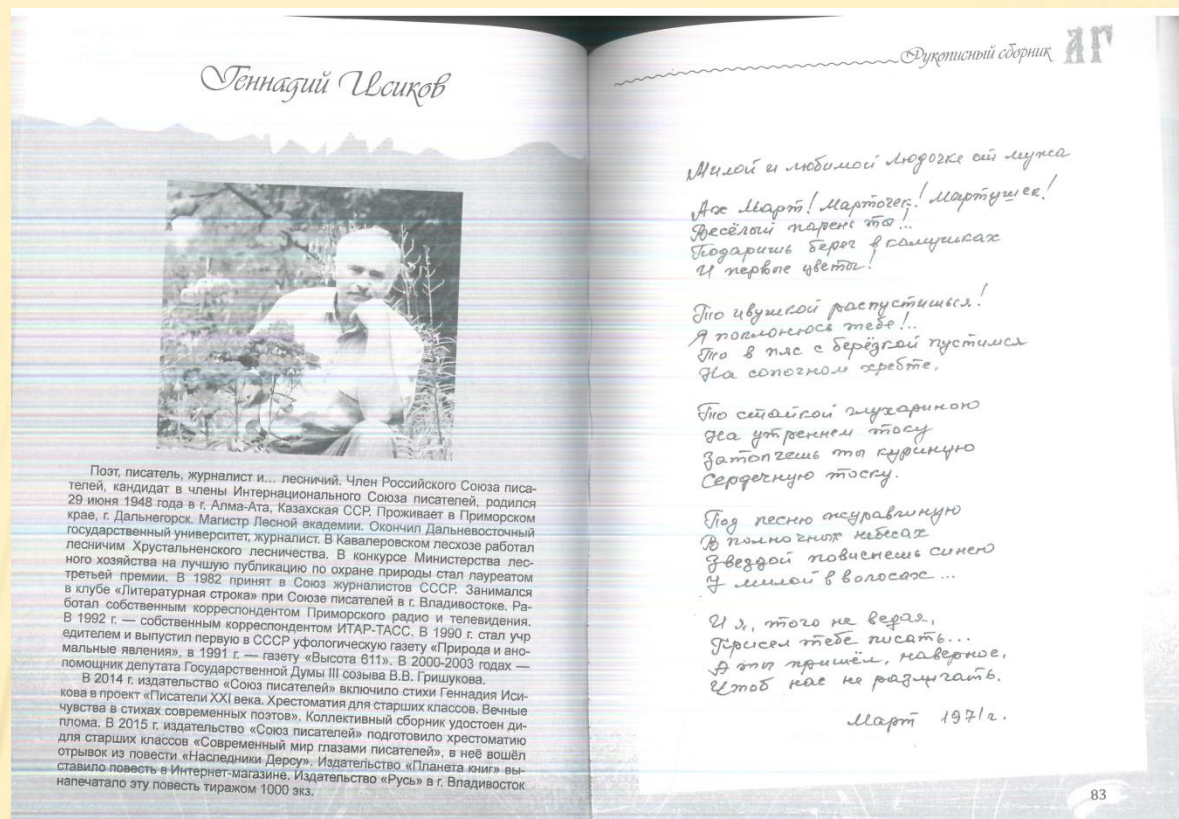 Геннадий Исиков
Поэт, писатель, журналист и... лесничий. Член Российского Союза писа-
телей, кандидат в члены Интернационального Союза писателей, родился
29 июня 1948 года в г. Алма-Ата, Казахская ССР. Проживает в Приморском
крае, г. Дальнегорск. Магистр Лесной академии. Окончил Дальневосточный
государственный университет, журналист. В Кавалеровском лесхозе работал
лесничим Хрустальненского лесничества. В конкурсе Министерства лес-
ного хозяйства на лучшую публикацию по охране природы стал лауреатом
третьей премии. В 1982 принят в Союз журналистов СССР. Занимался
в клубе «Литературная строка» при Союзе писателей в г. Владивостоке. Ра-
ботал собственным корреспондентом Приморского радио и телевидения.
В 1992 г. — собственным корреспондентом ИТАР-ТАСС. В 1990 г. стал учр
едителем и выпустил первую в СССР уфологическую газету «Природа и ано-
мальные явления», в 1991 г. — газету «Высота 611». В 2000-2003 годах —
помощник депутата Государственной Думы III созыва В.В. Гришукова.
В 2014 г. издательство «Союз писателей» включило стихи Геннадия Иси-
кова в проект «Писатели XXI века. Хрестоматия для старших классов. Вечные
чувства в стихах современных поэтов». Коллективный сборник удостоен ди-
плома. В 2015 г. издательство «Союз писателей» подготовило хрестоматию
для старших классов «Современный мир глазами писателей», в неё вошёл
отрывок из повести «Наследники Дерсу». Издательство «Планета книг» вы-
ставило повесть в Интернет-магазине. Издательство «Русь» в г. Владивосток
напечатало эту повесть тиражом 1000 экз.
Рукописный сборник
АГ
Милой и любимой Людочке от мужа
Ах Март! Марточек! Мартушек!
Весёлый парень ты...
Подаришь берег в камушках
И первые цветы!
То ивушкой распустишься!
Я поклонюсь тебе!..
То в пляс с берёзкой пустимся
На сопочном хребте.
То стайкой глухариною
На утреннем току
Затопчешь ты куриную
Сердечную тоску.
Под песню журавлиную
В полночных небесах
Звездой повиснешь синею
У милой в волосах...
И я, того не ведая,
Присел тебе писать...
А ты пришёл, наверное,
Чтоб нас не разлучать.
Март 1971г.
83